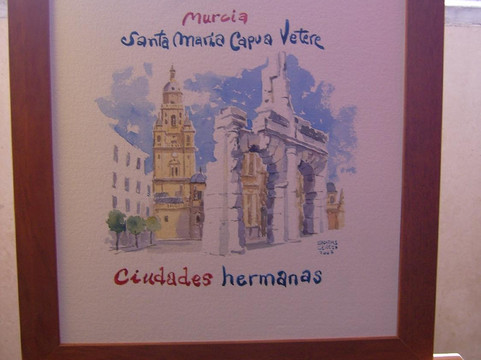 Murcia
Santa Maria Capua Vetere
Ciudades hermanas